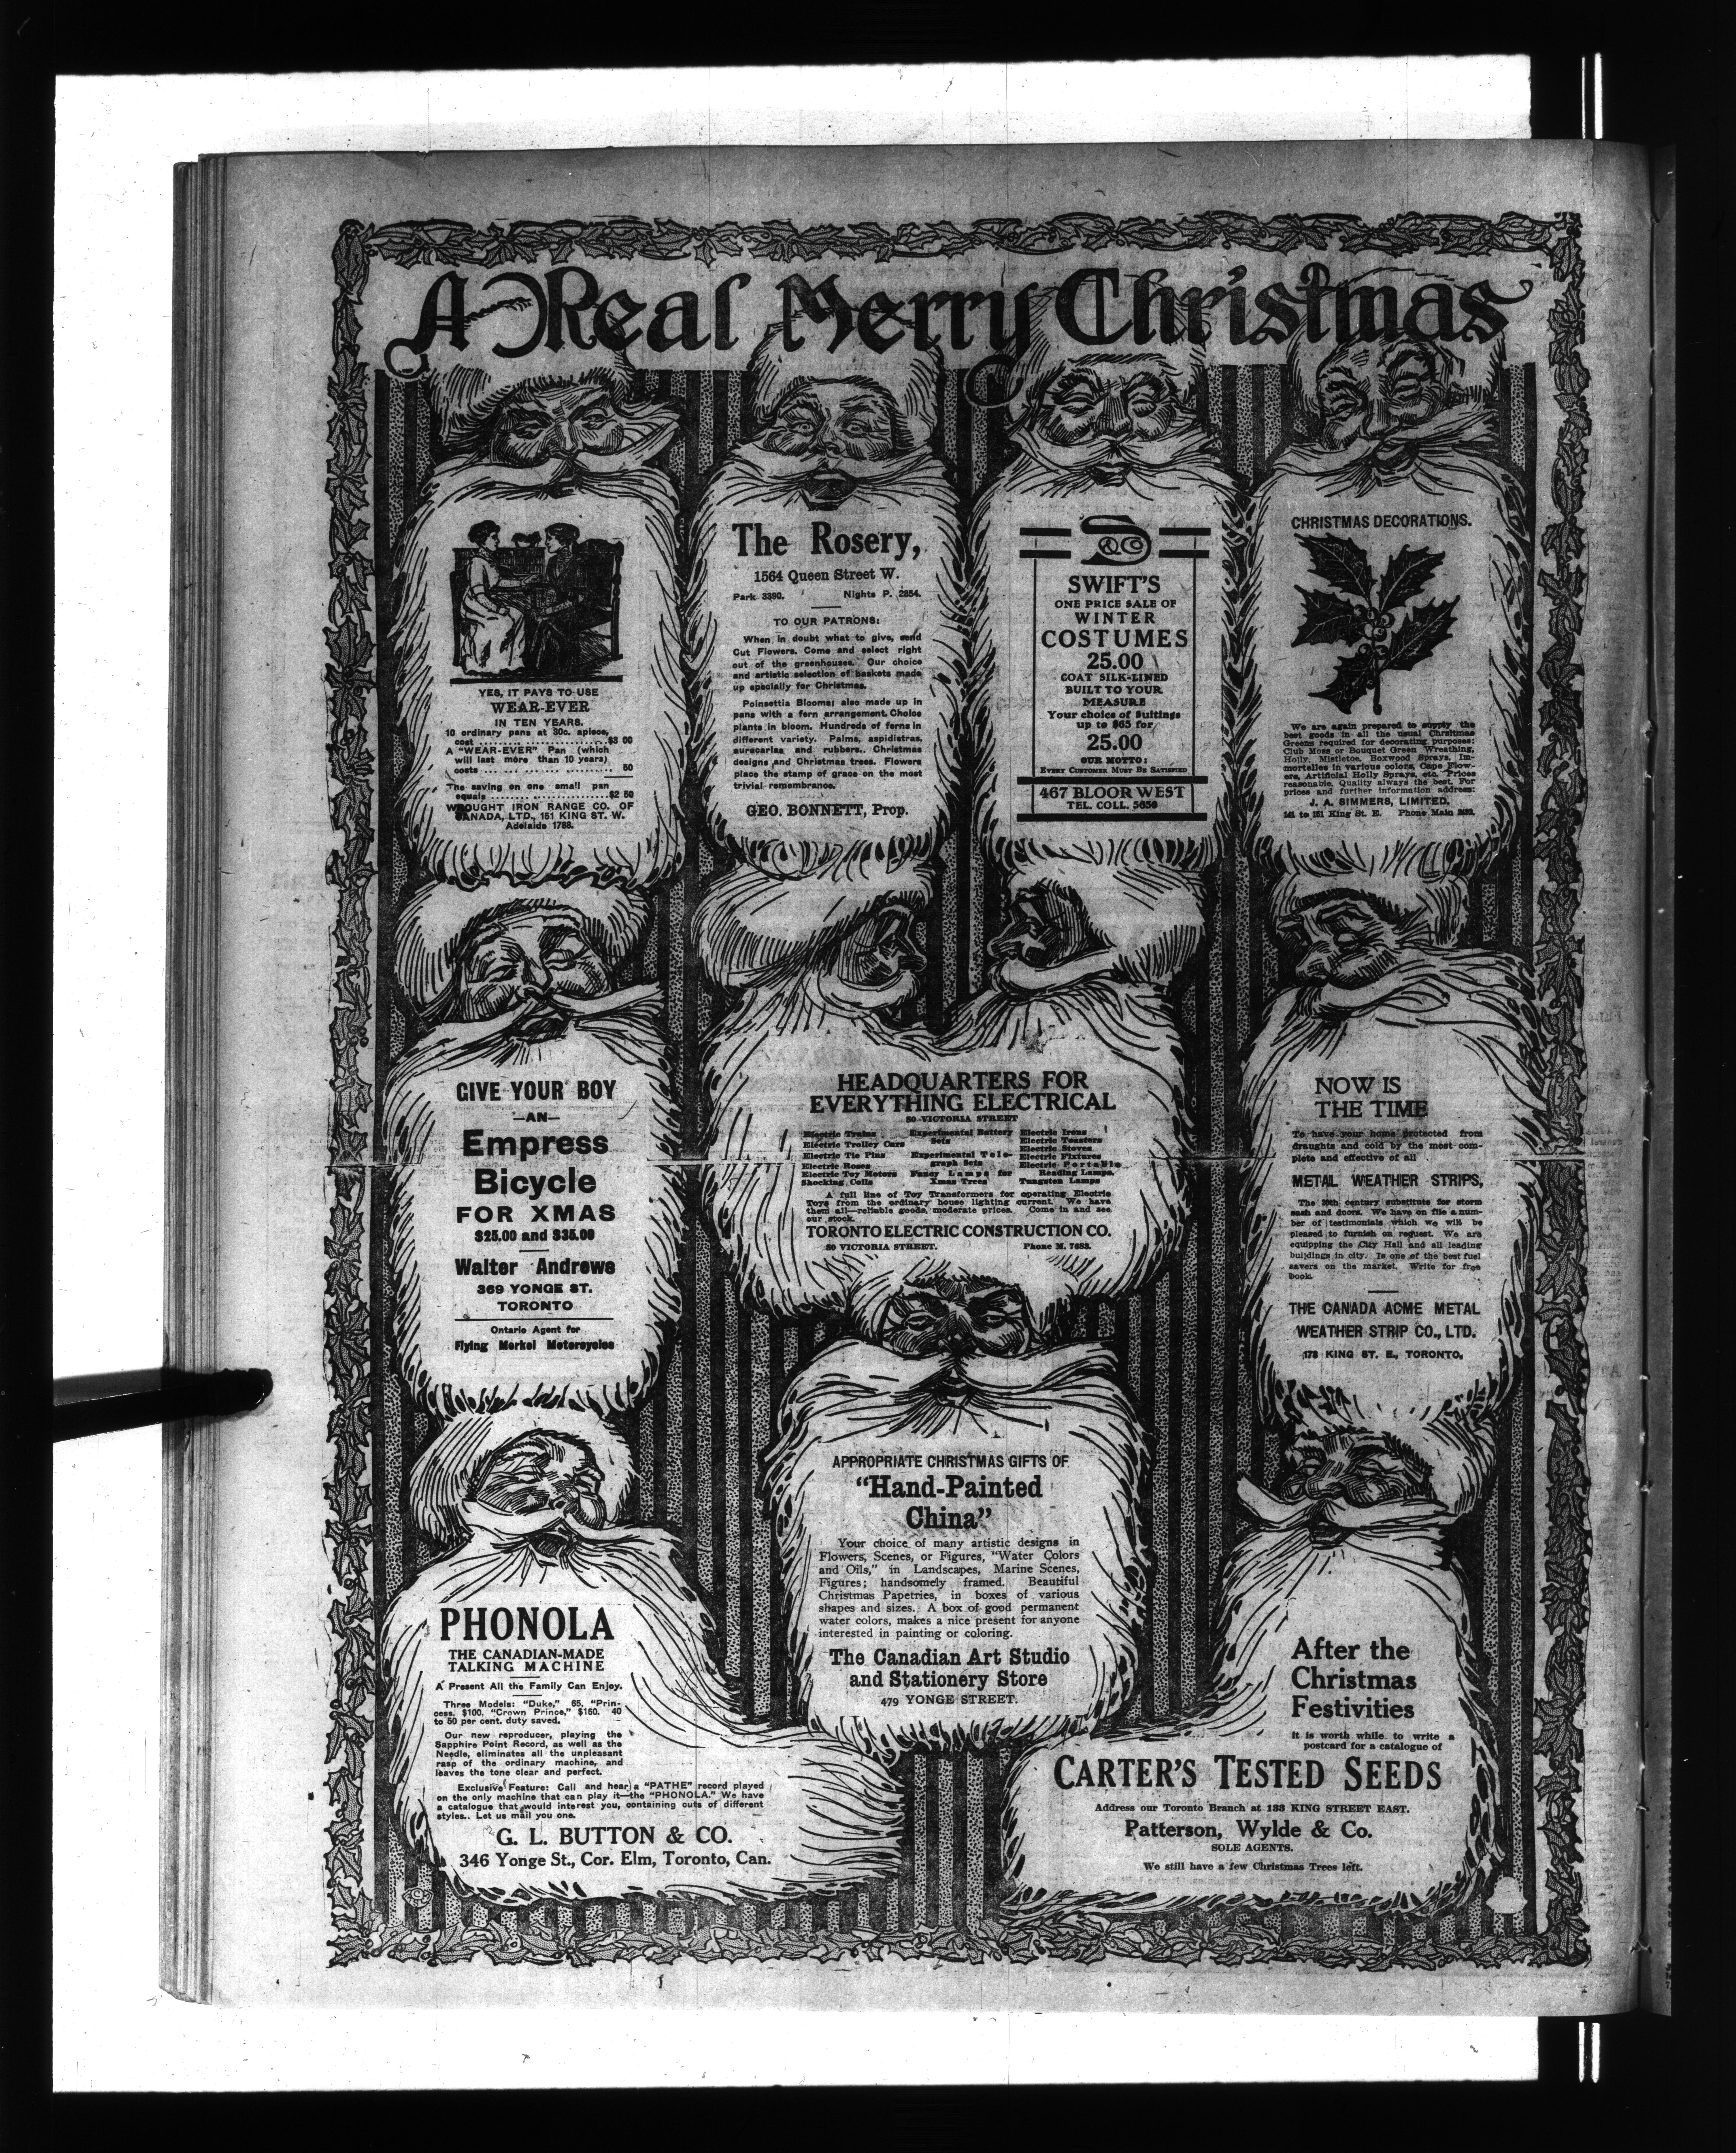 A Real Merry Christmas
YES, IT PAYS TO USE
WEAR-EVER
IN TEN YEARS.
10 ordinary pans at 30c. apiece,
cost ..................$3 00
A "WEAR-EVER" Pan (which
will last more than 10 years)
costs .................. 50
The saving on one small pan
equals ..................$2 50
WROUGHT IRON RANGE CO. OF
CANADA, LTD., 151 KING ST. W.
Adelaide 1788.
The Rosery,
1564 Queen Street W.
Park 3390. Nights P. 2854.
TO OUR PATRONS:
When in doubt what to give, send
Cut Flowers. Come and select right
out of the greenhouses. Our choice
and artistic selection of baskets made
up specially for Christmas.
Poinsettia Blooms; also made up in
pans with a fern arrangement. Choice
plants in bloom. Hundreds of ferns in
different variety. Palms, aspidistras,
aurscarias and rubbers. Christmas
designs and Christmas trees. Flowers
place the stamp of grace on the most
trivial remembrance.
GEO. BONNETT, Prop.
S & Co
SWIFT'S
ONE PRICE SALE OF
WINTER
COSTUMES
25.00
COAT SILK-LINED
BUILT TO YOUR
MEASURE
Your choice of Suitings
up to $65 for
25.00
OUR MOTTO:
EVERY CUSTOMER MUST BE SATISFIED
467 BLOOR WEST
TEL. COLL. 5650
CHRISTMAS DECORATIONS.
We are again prepared to supply the
best goods in all the usual Christmas
Greens required for decorating purposes:
Club Moss or Bouquet Green Wreathing,
Holly, Mistletoe, Boxwood Sprays, Im-
mortelles in various colors, Cape Flow-
ers, Artificial Holly Sprays, etc. Prices
reasonable. Quality always the best. For
prices and further information address:
J. A. SIMMERS, LIMITED.
141 to 151 King St. E. Phone Main
GIVE YOUR BOY
—AN—
Empress
Bicycle
FOR XMAS
$25.00 and $35.00
Walter Andrews
369 YONGE ST.
TORONTO
Ontario Agent for
Flying Merkel Motorcycles
HEADQUARTERS FOR
EVERYTHING ELECTRICAL
80 VICTORIA STREET
Electric Trains
Electric Trolley Cars
Electric Tie Pins
Electric Roses
Electric Toy Motors
Shocking Coils
Experimental Battery
Sets
Experimental Tele-
graph Sets
Fancy Lamps for
Xmas Trees
Electric Irons
Electric Toasters
Electric Stoves
Electric Fixtures
Electric Portable
Reading Lamps.
Tungsten Lamps
A full line of Toy Transformers for operating Electric
Toys from the ordinary house lighting current. We have
them all—reliable goods, moderate prices. Come in and see
our stock.
TORONTO ELECTRIC CONSTRUCTION CO.
80 VICTORIA STREET. Phone M. 7653.
NOW IS
THE TIME
To have your home protected from
draughts and cold by the most com-
plete and effective of all
METAL WEATHER STRIPS,
The 20th century substitute for storm
sash and doors. We have on file a num-
ber of testimonials which we will be
pleased to furnish on request. We are
equipping the City Hall and all leading
buildings in city. Is one of the best fuel
savers on the market. Write for free
book.
THE CANADA ACME METAL
WEATHER STRIP CO., LTD.
178 KING ST. E., TORONTO.
APPROPRIATE CHRISTMAS GIFTS OF
"Hand-Painted
China"
Your choice of many artistic designs in
Flowers, Scenes, or Figures, "Water Colors
and Oils," in Landscapes, Marine Scenes,
Figures; handsomely framed. Beautiful
Christmas Papetries, in boxes of various
shapes and sizes. A box of good permanent
water colors, makes a nice present for anyone
interested in painting or coloring.
The Canadian Art Studio
and Stationery Store
479 YONGE STREET.
PHONOLA
THE CANADIAN-MADE
TALKING MACHINE
A Present All the Family Can Enjoy.
Three Models: "Duke," 65, "Prin-
cess, $100, "Crown Prince," $150. 40
to 50 per cent. duty saved.
Our new reproducer, playing the
Sapphire Point Record, as well as the
Needle, eliminates all the unpleasant
rasp of the ordinary machine, and
leaves the tone clear and perfect.
Exclusive Feature: Call and hear a "PATHE" record played
on the only machine that can play it—the "PHONOLA." We have
a catalogue that would interest you, containing cuts of different
styles.. Let us mail you one.
G. L. BUTTON & CO.
346 Yonge St., Cor. Elm, Toronto, Can.
After the
Christmas
Festivities
It is worth while to write a
postcard for a catalogue of
CARTER'S TESTED SEEDS
Address our Toronto Branch at 133 KING STREET EAST.
Patterson, Wylde & Co.
SOLE AGENTS.
We still have a few Christmas Trees left.